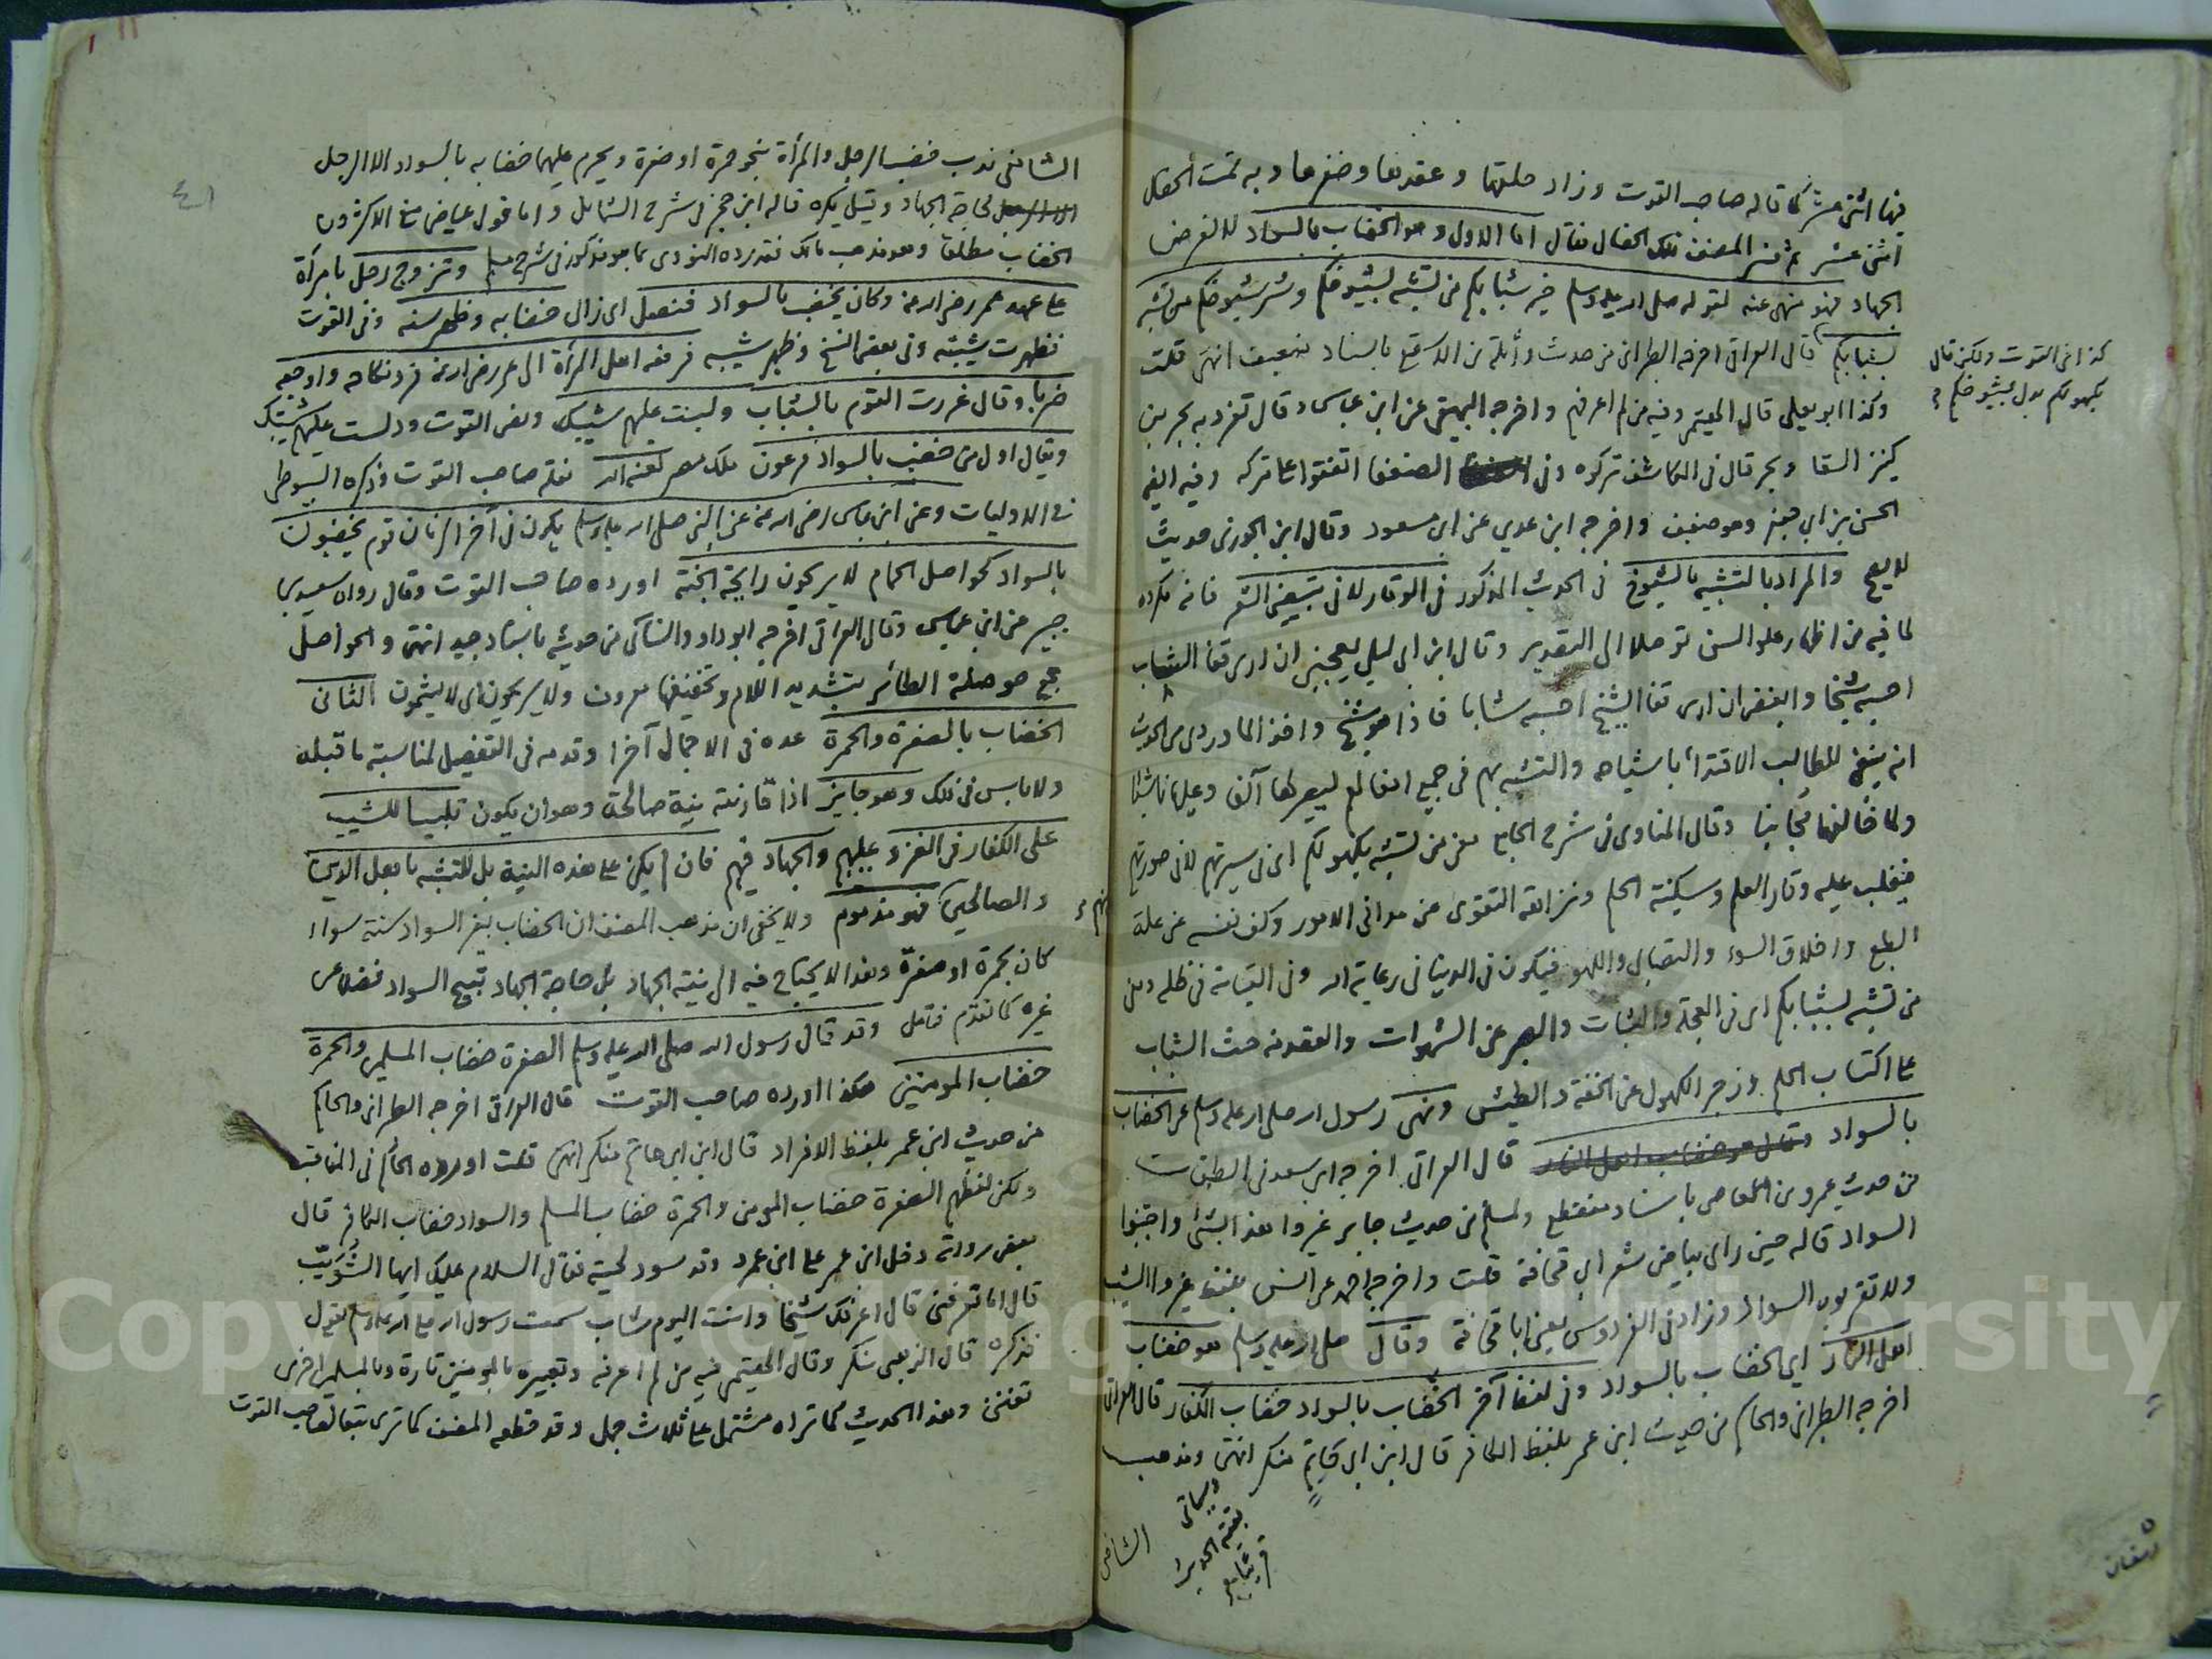 فيها اثنتى عشر كما قاله صاحب القوت وزاد حلقها وعقدها وضفرها وبه تمت الخصال
اثنى عشر ثم فسر المصنف تلك الخصال فقال اما الاول وهو الخضاب بالسواد لا لغرض
الجهاد فهو منهى عنه لقوله صلى الله عليه وسلم خير شبابكم من تشبه بشيوخكم وشر شيوخكم من تشبه
بشبابكم قال العراقى اخرجه الطبرانى من حديث واثلة بن الاسقع باسناد ضعيف انتهى قلت
كذا فى القوت ولكن قال
بكهولكم بدل بشيوخكم
وكذا ابو يعلى قال الهيثمى وفيه من لم اعرفهم واخرجه البيهقى عن ابن عباس وقال تفرد به بحر بن
كنيز السقا وبحر قال فى الكاشف تركوه وفى الضعفا اتفقوا على تركه وفيه ايضا
الحسن بن ابى جعفر وهو ضعيف واخرجه ابن عدى عن ابن مسعود وقال ابن الجوزى حديث
لا يصح والمراد بالتشبه بالشيوخ فى الحديث المذكور فى الوقار لا فى تبييض الشعر فانه مكروه
لما فيه من اظهار علو السن توصلا الى التقدير وقال ابن ابى ليلى يعجبنى ان ارى قفا الشاب
احسبه شيخا وابغض ان ارى قفا الشيخ احسبه شابا فاذا هو شيخ واخذ الماوردى من الحديث
انه ينبغى للطالب الاقتداء باشياخه والتشبه بهم فى جميع افعالهم ليصير لها آلفا وعليها ناشئا
ولما خالفها مجانبا وقال المناوى فى شرح الجامع يعنى من تشبه بكهولكم اى فى سيرتهم لا فى صورتهم
فيغلب عليه وقار العلم وسكينة الحلم ونزاهة التقوى عن مدانى الامور وكف نفسه عن عجلة
الطبع واخلاق السوء والتصابى واللهو فيكون فى الدنيا فى رعاية الله وفى القيامة فى ظله ومن
من تشبه بشبابكم اى فى العجلة والثبات والصبر عن الشهوات والقصد منه حث الشباب
على اكتساب الحلم وزجر الكهول عن الخفة والطيش ونهى رسول الله صلى الله عليه وسلم عن الخضاب
بالسواد وقال هو خضاب اهل النار قال العراقى اخرجه ابن سعد فى الطبقات
من حديث عمرو بن العاص باسناد منقطع ولمسلم من حديث جابر غيروا هذا بشئ واجتنبوا
السواد قاله حين راى بياض شعر ابى قحافة قلت واخرجه احمد عن انس بلفظ غيروا الشيب
ولا تقربوه السواد وزاد فى الفردوس يعنى ابا قحافة وقال صلى الله عليه وسلم هو خضاب
اهل النار اى الخضاب بالسواد وفى لفظ آخر الخضاب بالسواد خضاب الكفار قال العراقى
اخرجه الطبرانى والحاكم من حديث ابن عمر بلفظ الكافر قال ابن ابى حاتم منكر انتهى ومذهب
وسياتى
بقية الحديث
قريبا
الشافعى
الشافعى ندب خضب الرجل والمرأة بنحو حمرة او صفرة ويحرم عليهما خضابه بالسواد الا الرجل
لحاجة الجهاد وقيل يكره قاله ابن حجر فى شرح الشمايل واما قول عياض منع الاكثرون
الخضاب مطلقا وهو مذهب مالك فقد رده النووى بما هو مذكور فى شرح مسلم وتزوج رجل بامرأة
على عهد عمر رضى الله عنه وكان يخضب بالسواد فنصل اى زال خضابه وظهر سنه وفى القوت
فظهرت شيبته وفى بعض النسخ وظهر شيبه فرفعه اهل المرأة الى عمر رضى الله عنه فرد نكاحه واوجعه
ضربا وقال غررت القوم بالشباب ولبست عليهم شيبك ونص القوت ودلست عليهم شيبتك
ويقال اول من خضب بالسواد فرعون ملك مصر لعنه الله نقله صاحب القوت وذكره السيوطى
فى الاوليات وعن ابن عباس رضى الله عنه عن النبى صلى الله عليه وسلم يكون فى آخر الزمان قوم يخضبون
بالسواد كحواصل الحمام لا يريحون رايحة الجنة اورده صاحب القوت وقال رواه سعيد بن
جبير عن ابن عباس وقال العراقى اخرجه ابو داود والنسائى من حديثه باسناد جيد انتهى والحواصل
جمع حوصلة الطائر بتشديد اللام وتخفيفها معروف ولا يريحون اى لا يشمون الثانى
الخضاب بالصفرة والحمرة عده فى الاجمال آخرا وقدمه فى التفصيل لمناسبة ما قبله
ولا باس فى ذلك وهو جايز اذا قارنته نية صالحة وهو ان يكون تلبيسا للشيب
على الكفار فى الغزو عليهم والجهاد فيهم فان لم يكن على هذه النية بل للتشبه باهل الدين
والصالحين فهو مذموم ولا يخفى ان مذهب المصنف ان الخضاب بغير السواد سنة سواء
كان بحمرة او صفرة وهذا لا يحتاج فيه الى نية الجهاد بل حاجة الجهاد تبيح السواد فضلا عن
غيره كما تقدم فتامل وقد قال رسول الله صلى الله عليه وسلم الصفرة خضاب المسلمين والحمرة
خضاب المومنين هكذا اورده صاحب القوت قال العراقى اخرجه الطبرانى والحاكم
من حديث ابن عمر بلفظ الافراد قال ابن ابى حاتم منكر انتهى قلت اورده الحاكم فى المناقب
ولكن لفظهم الصفرة خضاب المومن والحمرة خضاب المسلم والسواد خضاب الكافر قال
بعض رواته دخل ابن عمر على ابن عمرو وقد سود لحيته فقال السلام عليك ايها الشويب
قال اما تعرفنى قال اعرفك شيخا وانت اليوم شاب سمعت رسول الله صلى الله عليه وسلم يقول
فذكره قال الذهبى منكر وقال الهيثمى فيه من لم اعرفه وتعبيره بالمومنين تارة وبالمسلمين اخرى
تفنن وهذا الحديث كما تراه مشتمل على ثلاث جمل وقد قطعه المصنف كما ترى تبعا لصاحب القوت
٤١
Copyright © King Saud University